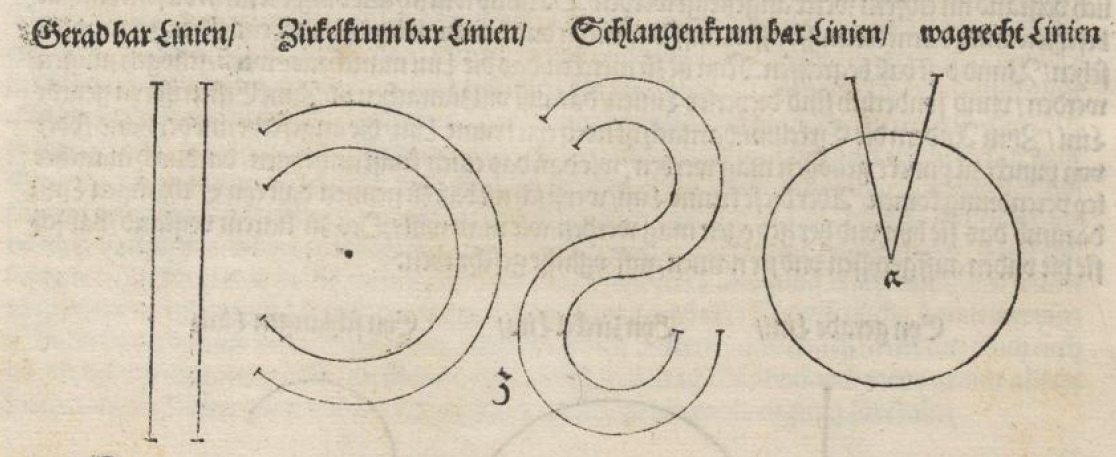 Gerad bar Linien/ Zirkelkrum bar Linien/ Schlangenkrum bar Linien/ wagrecht Linien
a
3